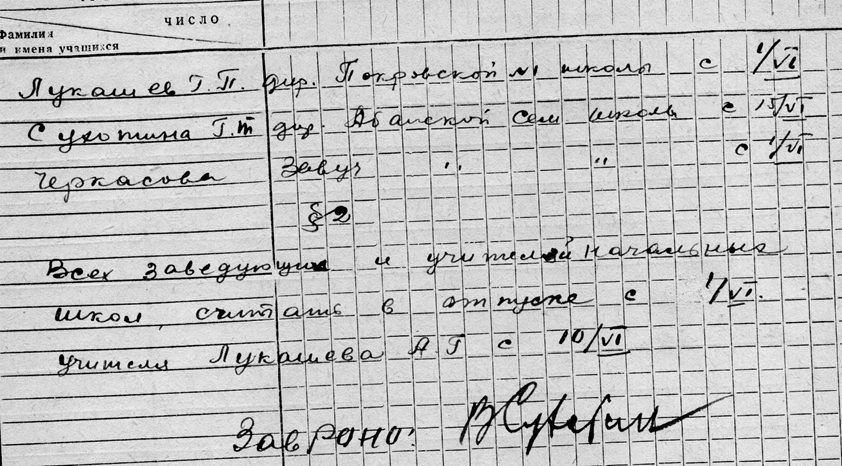 число
Фамилия
и имена учащихся
Лукашев Г.П. дир. Покровской №1 школы с 1/VI
Сухотина Г.М дир. Абанской сем школы с 15/VI
Черкасова Завуч " " с 1/VI
§2
Всех заведующих и учителей начальных
школ, считать в отпуске с 1/VI.
учителя Лукашева А Г с 10/VI
Заврано: